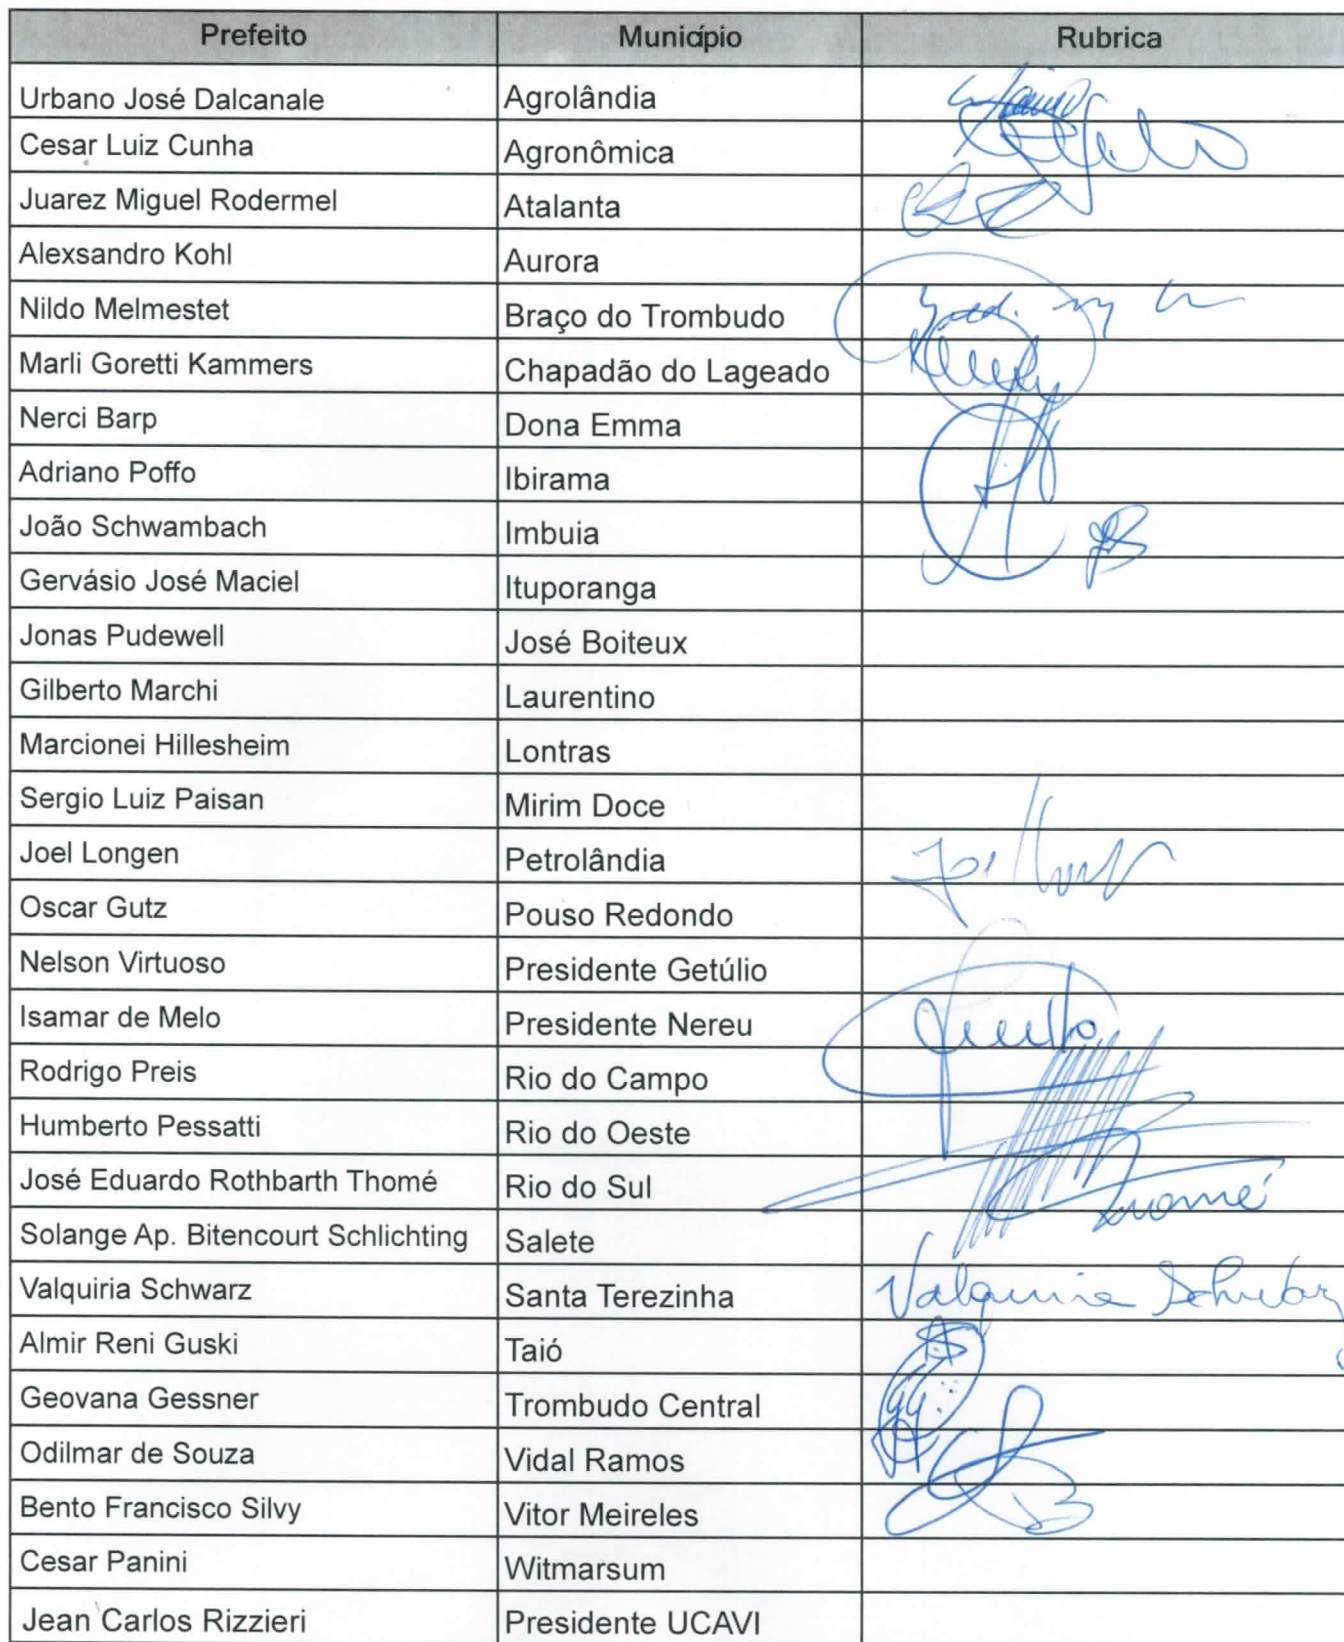 Prefeito Município Rubrica
Urbano José Dalcanale Agrolândia
Cesar Luiz Cunha Agronômica
Juarez Miguel Rodermel Atalanta
Alexsandro Kohl Aurora
Nildo Melmestet Braço do Trombudo
Marli Goretti Kammers Chapadão do Lageado
Nerci Barp Dona Emma
Adriano Poffo Ibirama
João Schwambach Imbuia
Gervásio José Maciel Ituporanga
Jonas Pudewell José Boiteux
Gilberto Marchi Laurentino
Marcionei Hillesheim Lontras
Sergio Luiz Paisan Mirim Doce
Joel Longen Petrolândia
Oscar Gutz Pouso Redondo
Nelson Virtuoso Presidente Getúlio
Isamar de Melo Presidente Nereu
Rodrigo Preis Rio do Campo
Humberto Pessatti Rio do Oeste
José Eduardo Rothbarth Thomé Rio do Sul
Solange Ap. Bitencourt Schlichting Salete
Valquiria Schwarz Santa Terezinha Valquiria Schwarz
Almir Reni Guski Taió
Geovana Gessner Trombudo Central
Odilmar de Souza Vidal Ramos
Bento Francisco Silvy Vitor Meireles
Cesar Panini Witmarsum
Jean Carlos Rizzieri Presidente UCAVI